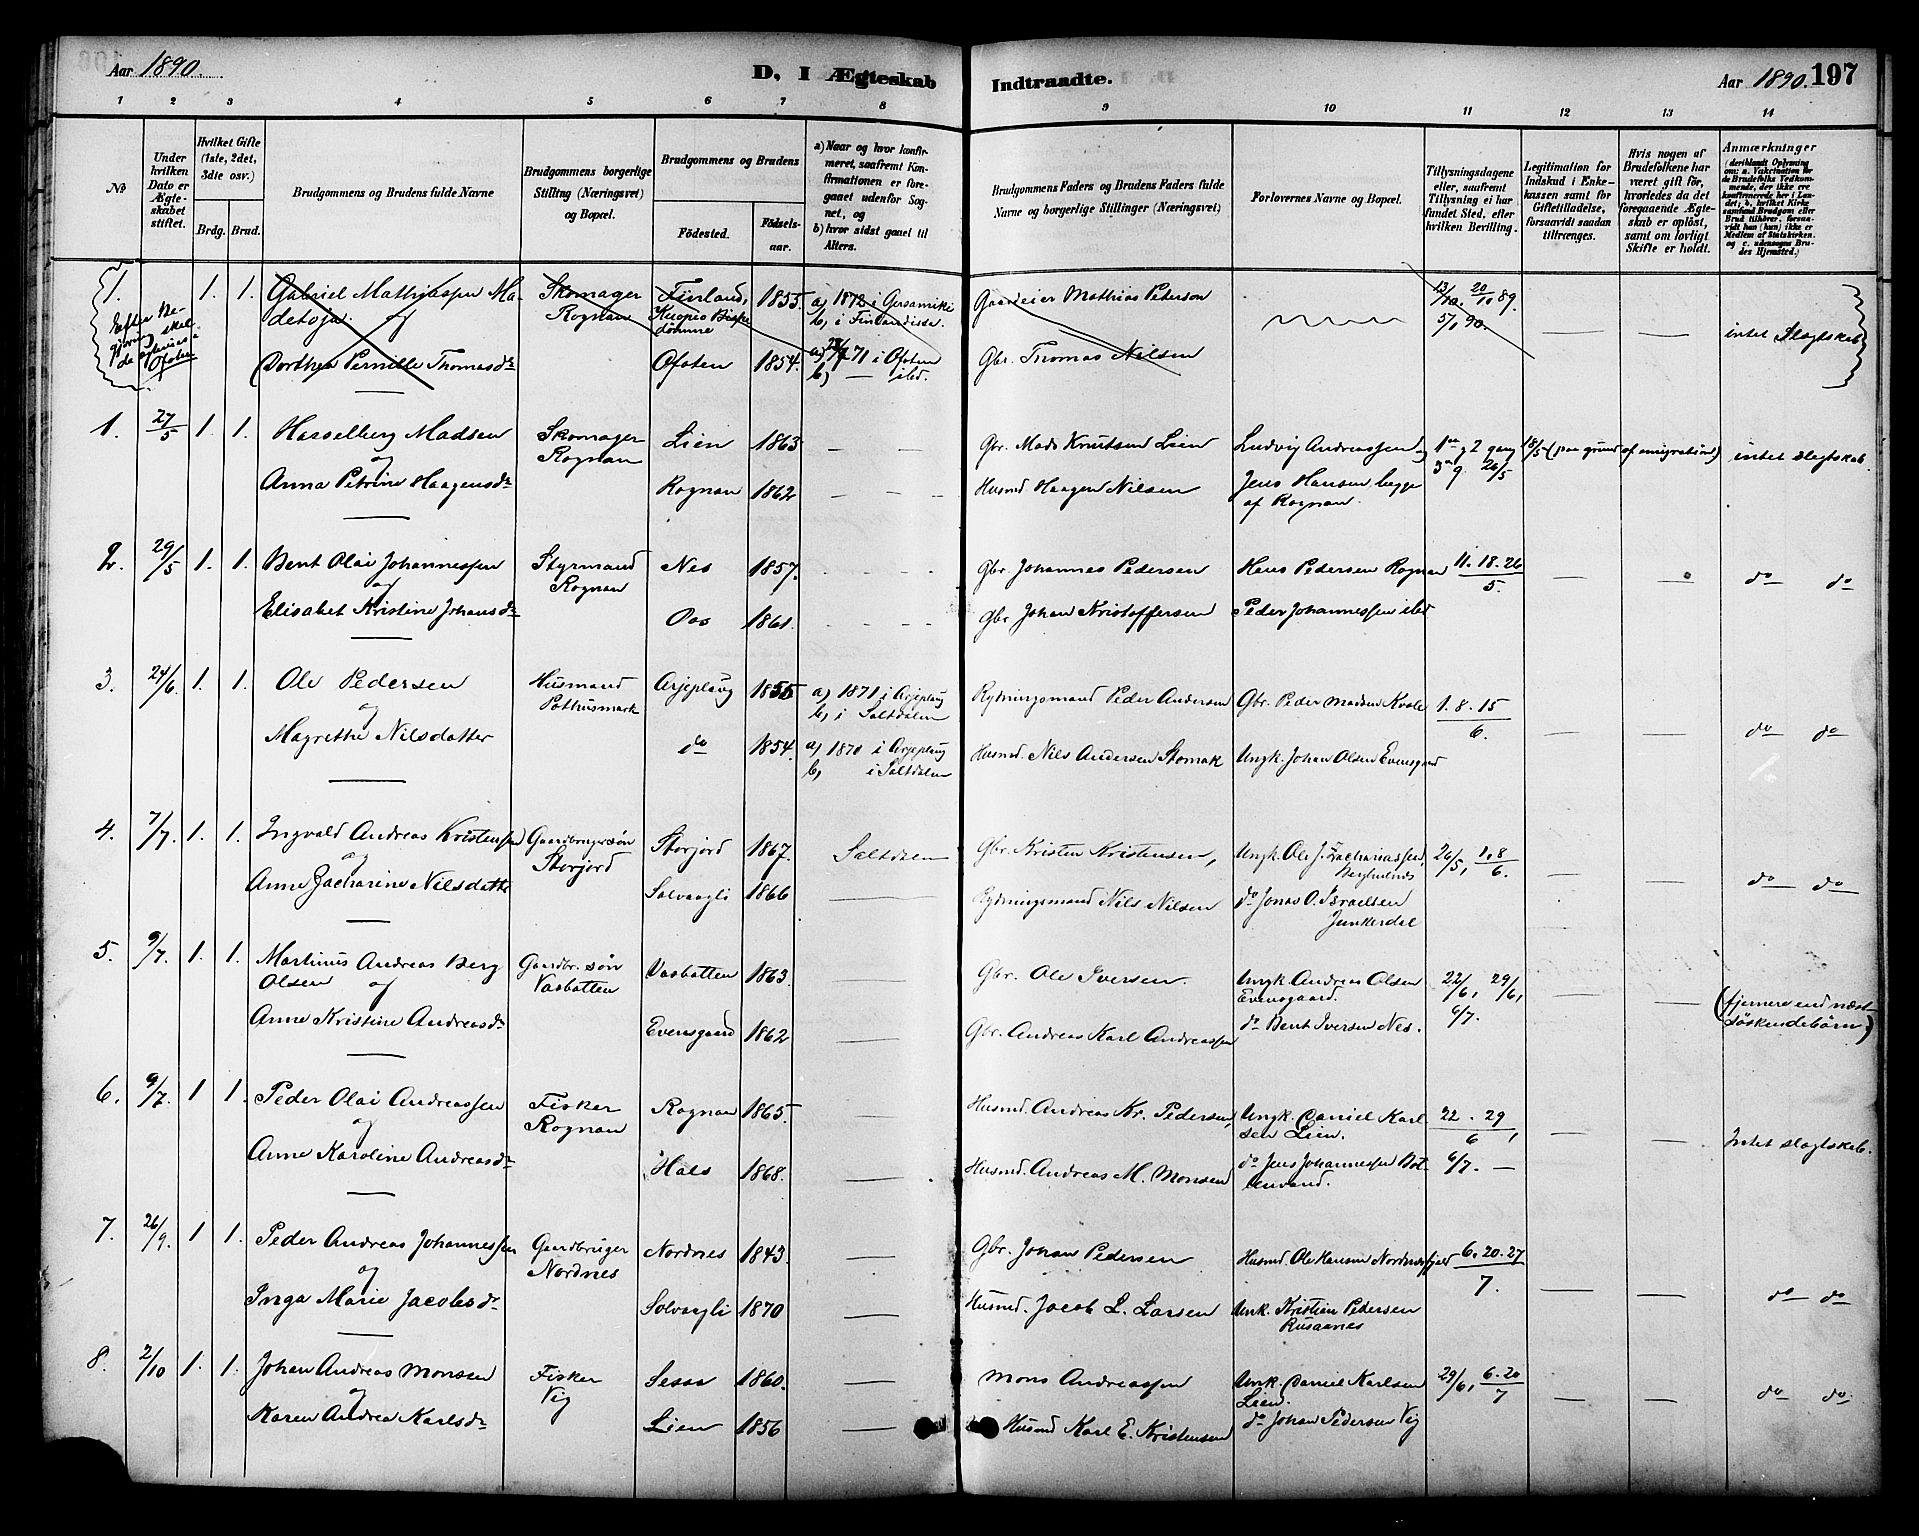 Aar 1890.
D, I Ægteskab
Indtraadte.
Aar 1890. 197
1 2 3 4 5 6 7 8 9 10 11 12 13 14
No
Under hvilken Dato er Ægteskabet stiftet.
Hvilket Gifte (1ste, 2det, 3die osv.)
Brdg. Brud.
Brudgommens og Brudens fulde Navne
Brudgommens borgerlige Stilling (Næringsvei) og Bopæl.
Brudgommens og Brudens
Födested.
Födsels-aar.
a) Naar og hvor konfirmeret, saafremt Konfirmationen er foregaaet udenfor Sognet, og
b) hvor sidst gaaet til Alters.
Brudgommens Faders og Brudens Faders fulde Navne og borgerlige Stillinger (Næringsvei)
Forlovernes Navne og Bopæl.
Tillysningsdagene eller, saafremt Tillysning ei har fundet Sted, efter hvilken Bevilling.
Legitimation for Indskud i Enkekassen samt for Giftetilladelse, forsaavidt saadan tiltrænges.
Hvis nogen af Brudefolkene har været gift för, hvorledes da det foregaaende Ægteskab er oplöst, samt om lovligt Skifte er holdt.
Anmærkninger
(deriblandt Oplysning om: a. Vakcination for de Brudefolks Vedkommende, der ikke ere konfirmerede her i Landet; b. hvilket Kirkesamfund Brudgom eller Brud tilhörer, forsaavidt han (hun) ikke er Medlem af Statskirken, og c. udensogns Brudes Hjemsted.)
1. 1. 1. Gabriel Mathiassen Madetoja Skomager Rognan Finland, Kuopio Bispedömme 1855 a) 1872 i b) i Finlandisse. Gaardeier Mathias Peterson 13/10. 20/10 89. 5/1 90. — — intet Slægtskab
og
Dorthea Pernille Thomasdr Ofoten 1854. a) 71 i Ofoten b) — ibd. Gbr. Thomas Nilsen
1. 27/5 1. 1. Hasselberg Madsen Skomager Rognan Lien 1863 — — — Gbr. Mads Knutsen Lien Ludvig Andreassen og 1ste g 2 gang 18/5 (paa grund af emigration) intet slægtskab
og
Anna Petrine Haagensdr Rognan 1862 — — — Husmd Haagen Nilsen Jens Hansen begge af Rognan. 3die g. 26/5
2. 29/5 1. 1. Bent Olai Johannessen Styrmand Rognan Nes 1857. Gbr. Johannes Pedersen Hans Pedersen Rognan 11. 18. 26/5. — — do do
og
Elisabet Kristine Johansdr Oas 1861. Gbr Johan Kristoffersen Peder Johannessen ibd
3. 24/6. 1. 1. Ole Pedersen Husmand Pothusmark Arjeplaug 1855 a) 1871 i Arjeplaug b) i Saltdalen Rydningsmand Peder Andersen Gbr. Peder Madsen Kvale 1. 8. 15/6. — — do do
og
Magrethe Nilsdatter do 1854. a) 1870 i Arjeplaug b) i Saltdalen Husmd. Nils Andersen Stomak Ungk. Johan Olsen Evensgaard
4. 7/7. 1. 1. Ingvald Andreas Kristensen Gaardbrugersøn Storjord Storjord 1867. Saltdalen Gbr. Kristen Kristensen, Ungk. Ole J. Zachariassen 26/5, 1.8/6. — — do do
og
Anne Zacharine Nilsdatter Solvaagli 1866 — Rydningsmand Nils Nilsen do Jonas O. Israelsen Junkerdal
5. 9/7. 1. 1. Martinus Andreas Berg Olsen Gaardbr. søn Vasbotten Vasbotten 1863. — Gbr. Ole Iversen. Ungk. Andreas Olsen Evensgaard. 22/6, 29/6, — — (fjernere end næst-søskendebörn)
og
Anne Kristine Andreasdr Evensgaard 1862 — Gbr. Andreas Karl Andreassen do Bent Iversen Nes. 6/7.
6. 9/7. 1 1. Peder Olai Andreassen Fisker Rognan Rognan 1865. — Husmd. Andreas Kr. Pedersen, Ungk. Daniel Karlsen Lien. 22. 29/6, — — Intet slægtskab.
og
Anne Karoline Andreasdr Hals 1868. — Husmd. Andreas M. Monsen do Jens Johannessen Botnvand. 6/7. —
7. 26/9. 1 1. Peder Andreas Johannessen Gaardbruger Nordnes Nordnes 1843. — Gbr. Johan Pedersen Husmd. Ole Hansen Nordnesfjeld 6. 20. 27/7. — — do do
og
Inga Marie Jacobsdr Solvaagli 1870 — Husmd. Jacob L. Larsen Unk. Kristian Pedersen Rusaanes
8. 2/10 1. 1. Johan Andreas Monsen Fisker Vig Sesse 1860. — Mons Andreassen Unk. Daniel Karlsen Lien. 29/6, 6. 20/7 — — do do.
og
Karen Andrea Karlsdr Lien 1856 — Husmd Karl E. Kristensen do Johan Pedersen Vig